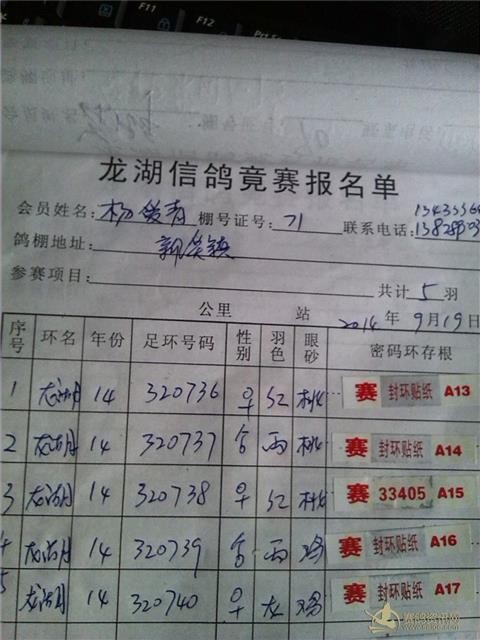 F11
F12
龙湖信鸽竞赛报名单
会员姓名: 杨 青 棚号证号: 71 联系电话:
鸽棚地址:
参赛项目: 共计 5 羽
公里 站 2014 年 9月19日
序号 环名 年份 足环号码 性别 羽色 眼砂 密码环存根
1 龙湖 14 320736 早 红 桃 赛 封环贴纸 A13
2 龙湖 14 320737 雨 桃 赛 封环贴纸 A14
3 龙湖 14 320738 早 红 桃 赛 33405 A15
4 龙湖 14 320739 雨 鸡 赛 封环贴纸 A16
5 龙湖 14 320740 早 鸡 赛 封环贴纸 A17
赛鸽资讯网